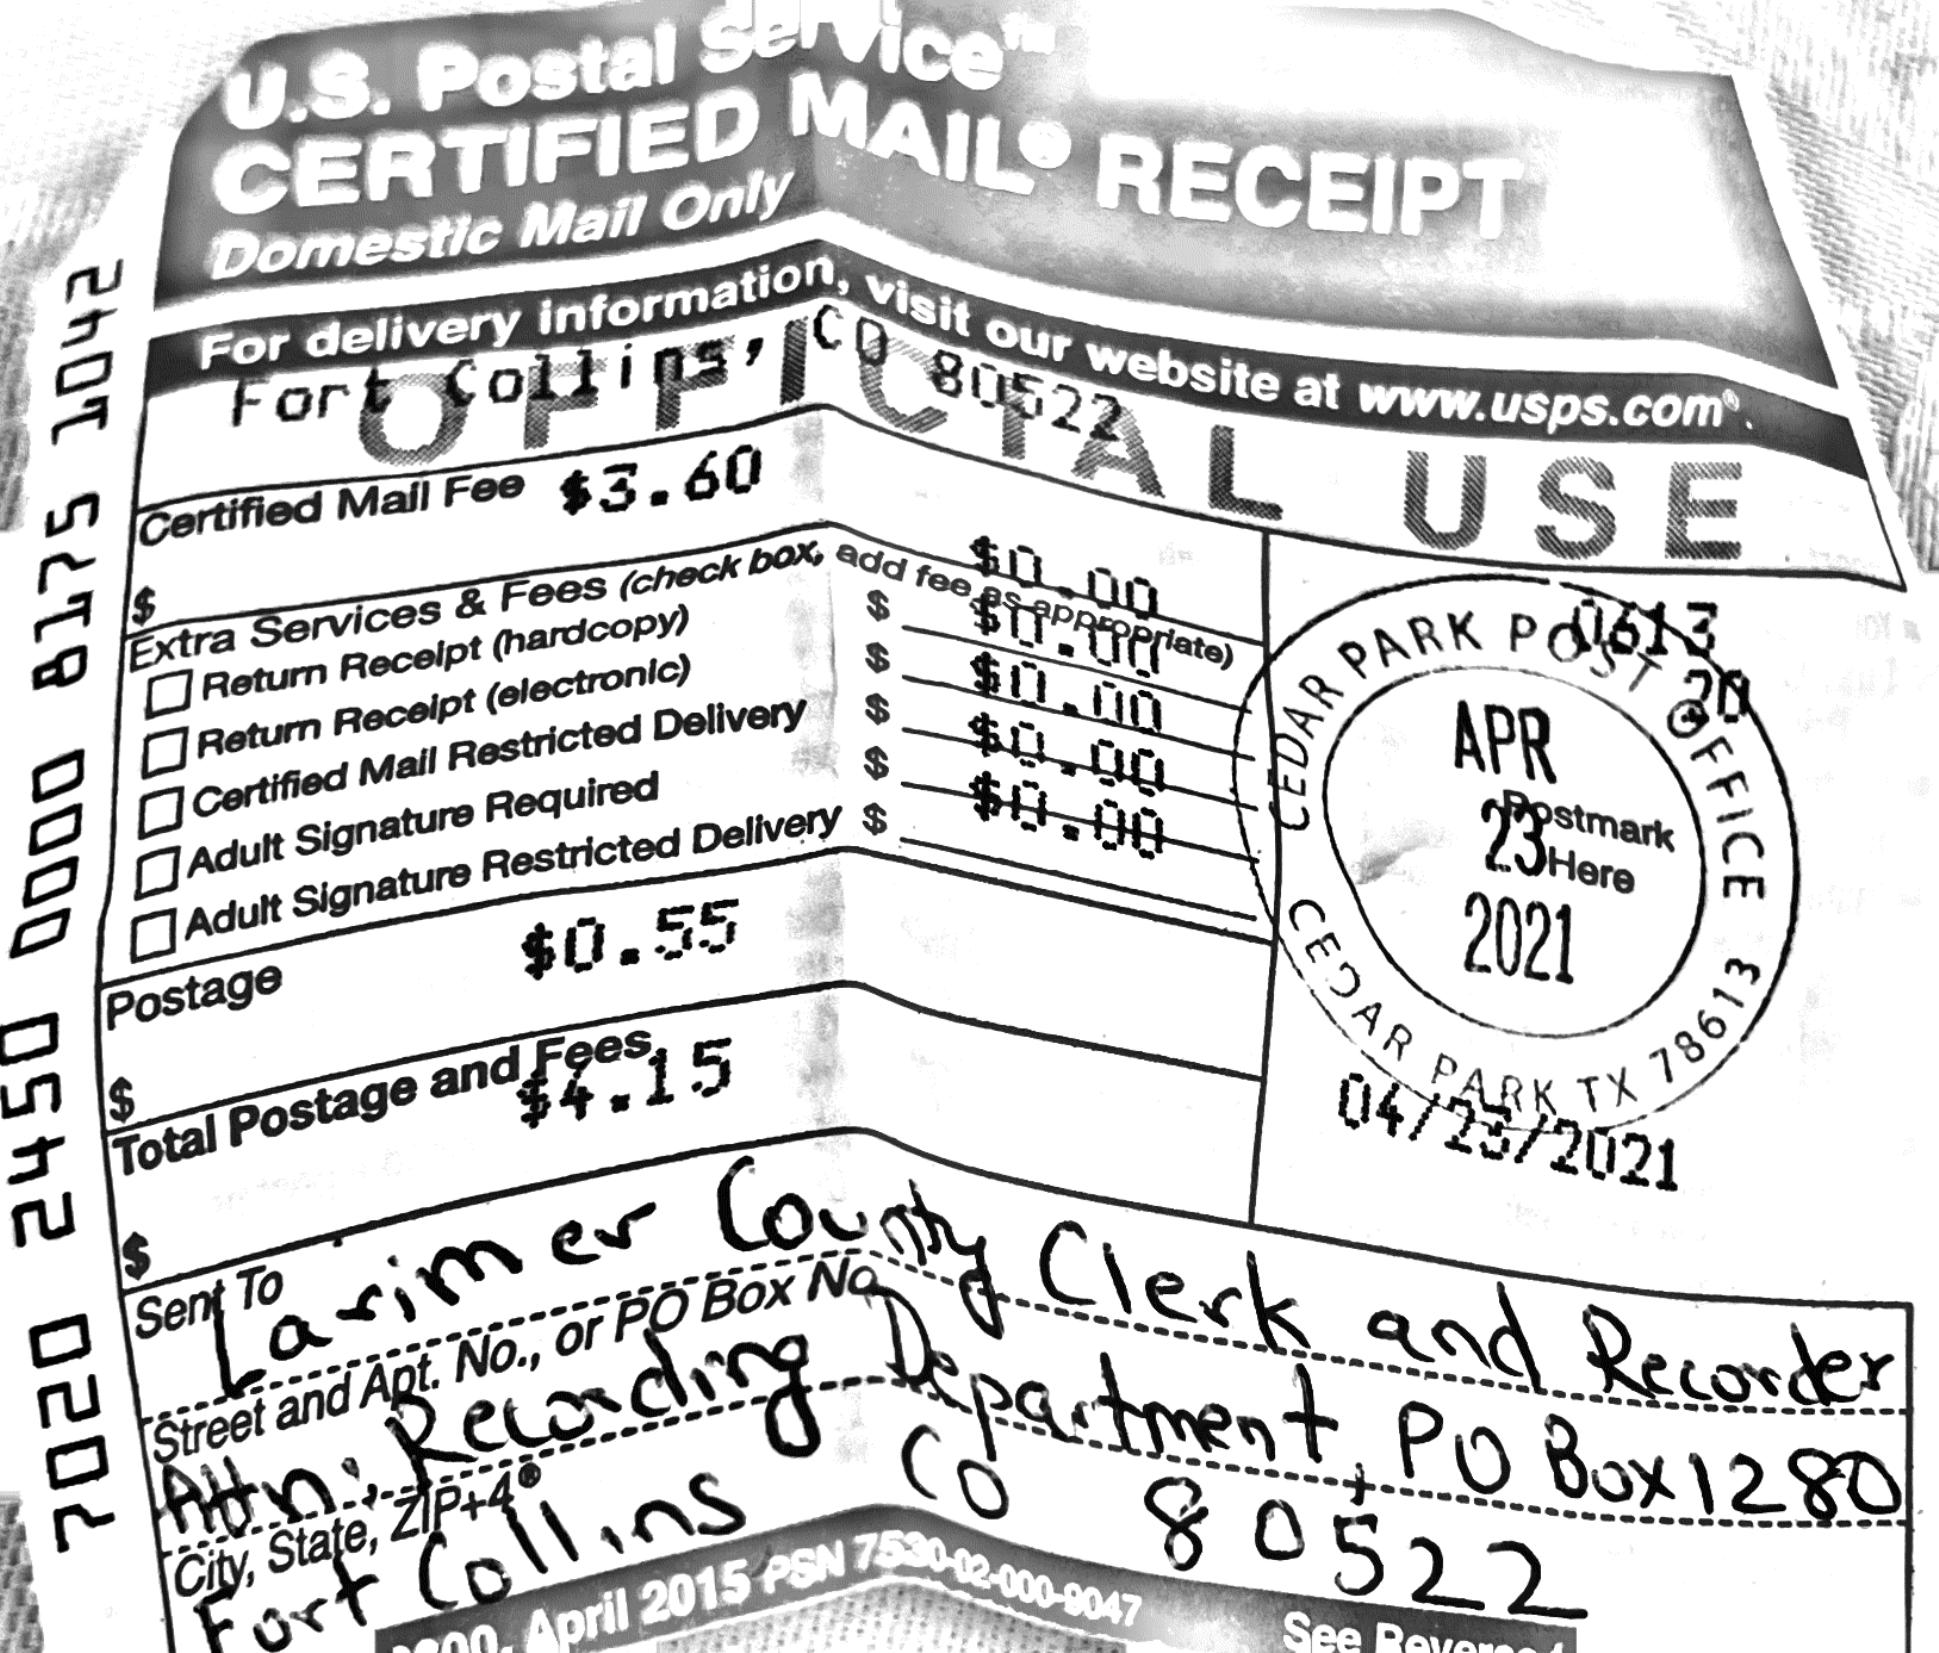 U.S. Postal Service™
CERTIFIED MAIL® RECEIPT
Domestic Mail Only
For delivery information, visit our website at www.usps.com®.
Fort Collins, CO 80522
OFFICIAL USE
Certified Mail Fee $3.60
$
Extra Services & Fees (check box, add fee as appropriate)
Return Receipt (hardcopy) $ $0.00
Return Receipt (electronic) $ $0.00
Certified Mail Restricted Delivery $ $0.00
Adult Signature Required $ $0.00
Adult Signature Restricted Delivery $ $0.00
Postage $0.55
$
Total Postage and Fees $4.15
$
0613
20
CEDAR PARK POST OFFICE
APR
23
2021
Postmark
Here
CEDAR PARK TX 78613
04/23/2021
Sent To
Larimer County Clerk and Recorder
Street and Apt. No., or PO Box No.
Attn: Recording Department, PO Box 1280
City, State, ZIP+4®
Fort Collins CO 80522
April 2015 PSN 7530-02-000-9047 See Reverse
7020 2450 0000 8175 1042